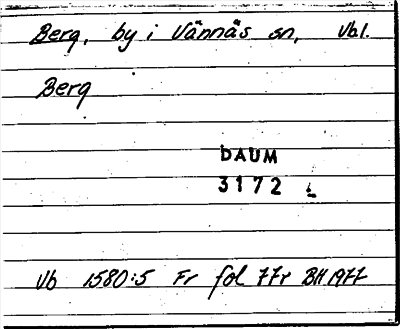 Berg, by i Vännäs sn, Vbl.
Berg
DAUM
3172
Vb 1580:5 Fr fol 77r BH 1977